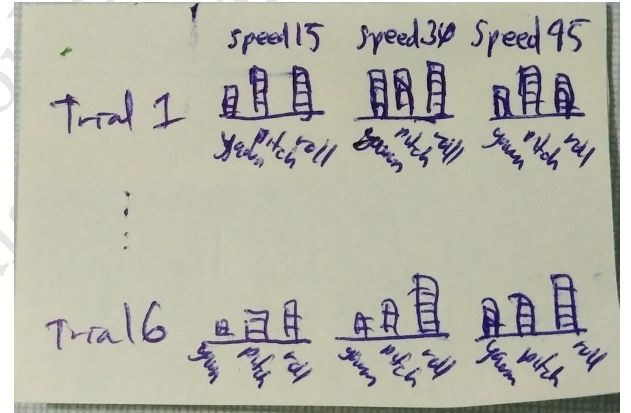 Speed15 Speed30 Speed45
Trial 1
yawn pitch roll yawn pitch roll yawn pitch roll
Trial 6
yawn pitch roll yawn pitch roll yawn pitch roll